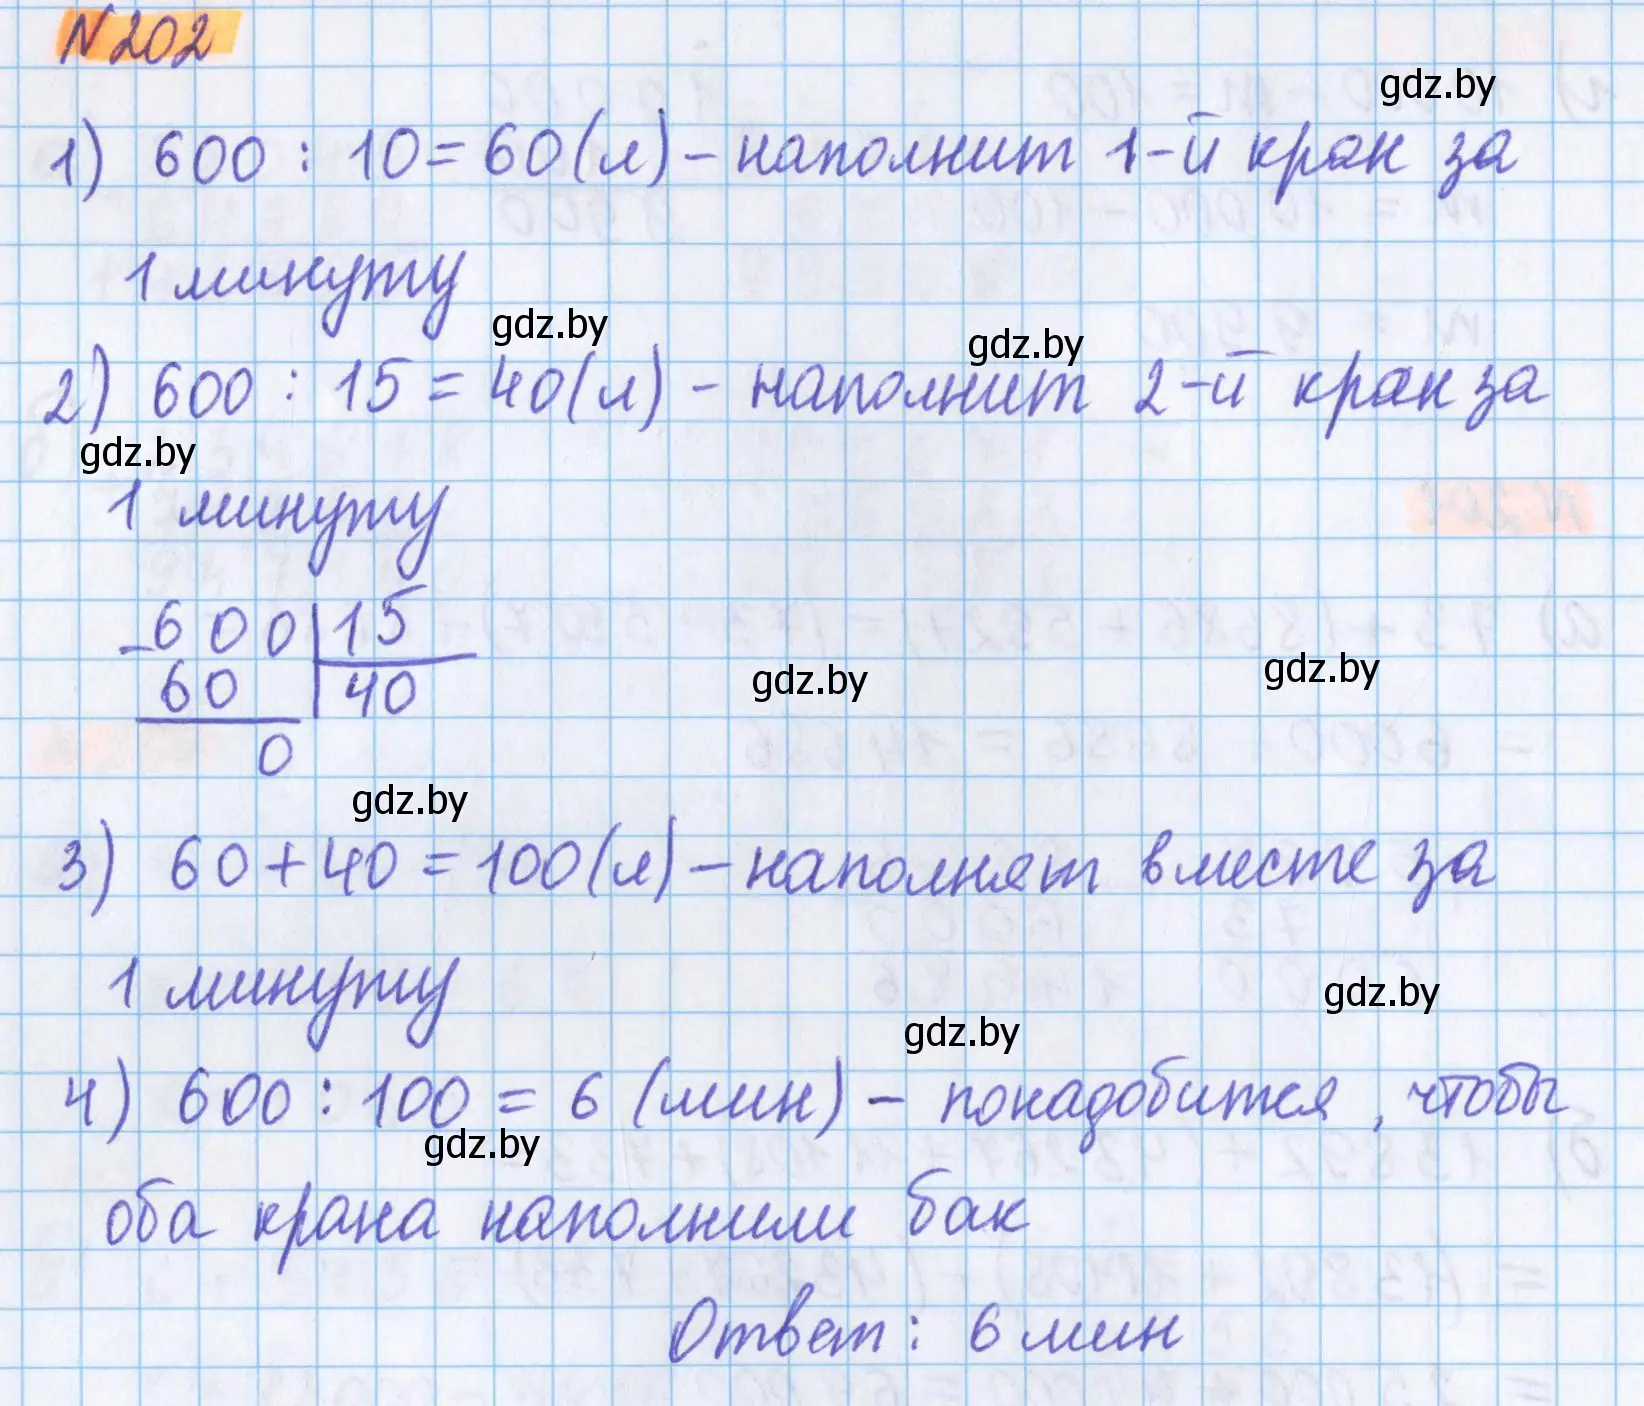 N 202
gdz.by
1) 600 : 10 = 60 (л) – наполнит 1-й кран за
1 минуту
gdz.by
gdz.by
2) 600 : 15 = 40 (л) – наполнит 2-й кран за
gdz.by
1 минуту
– 600 | 15
60 | 40
0
gdz.by
gdz.by
gdz.by
3) 60 + 40 = 100 (л) – наполнят вместе за
1 минуту
gdz.by
gdz.by
4) 600 : 100 = 6 (мин) – понадобится, чтобы
gdz.by
оба крана наполнили бак
Ответ: 6 мин